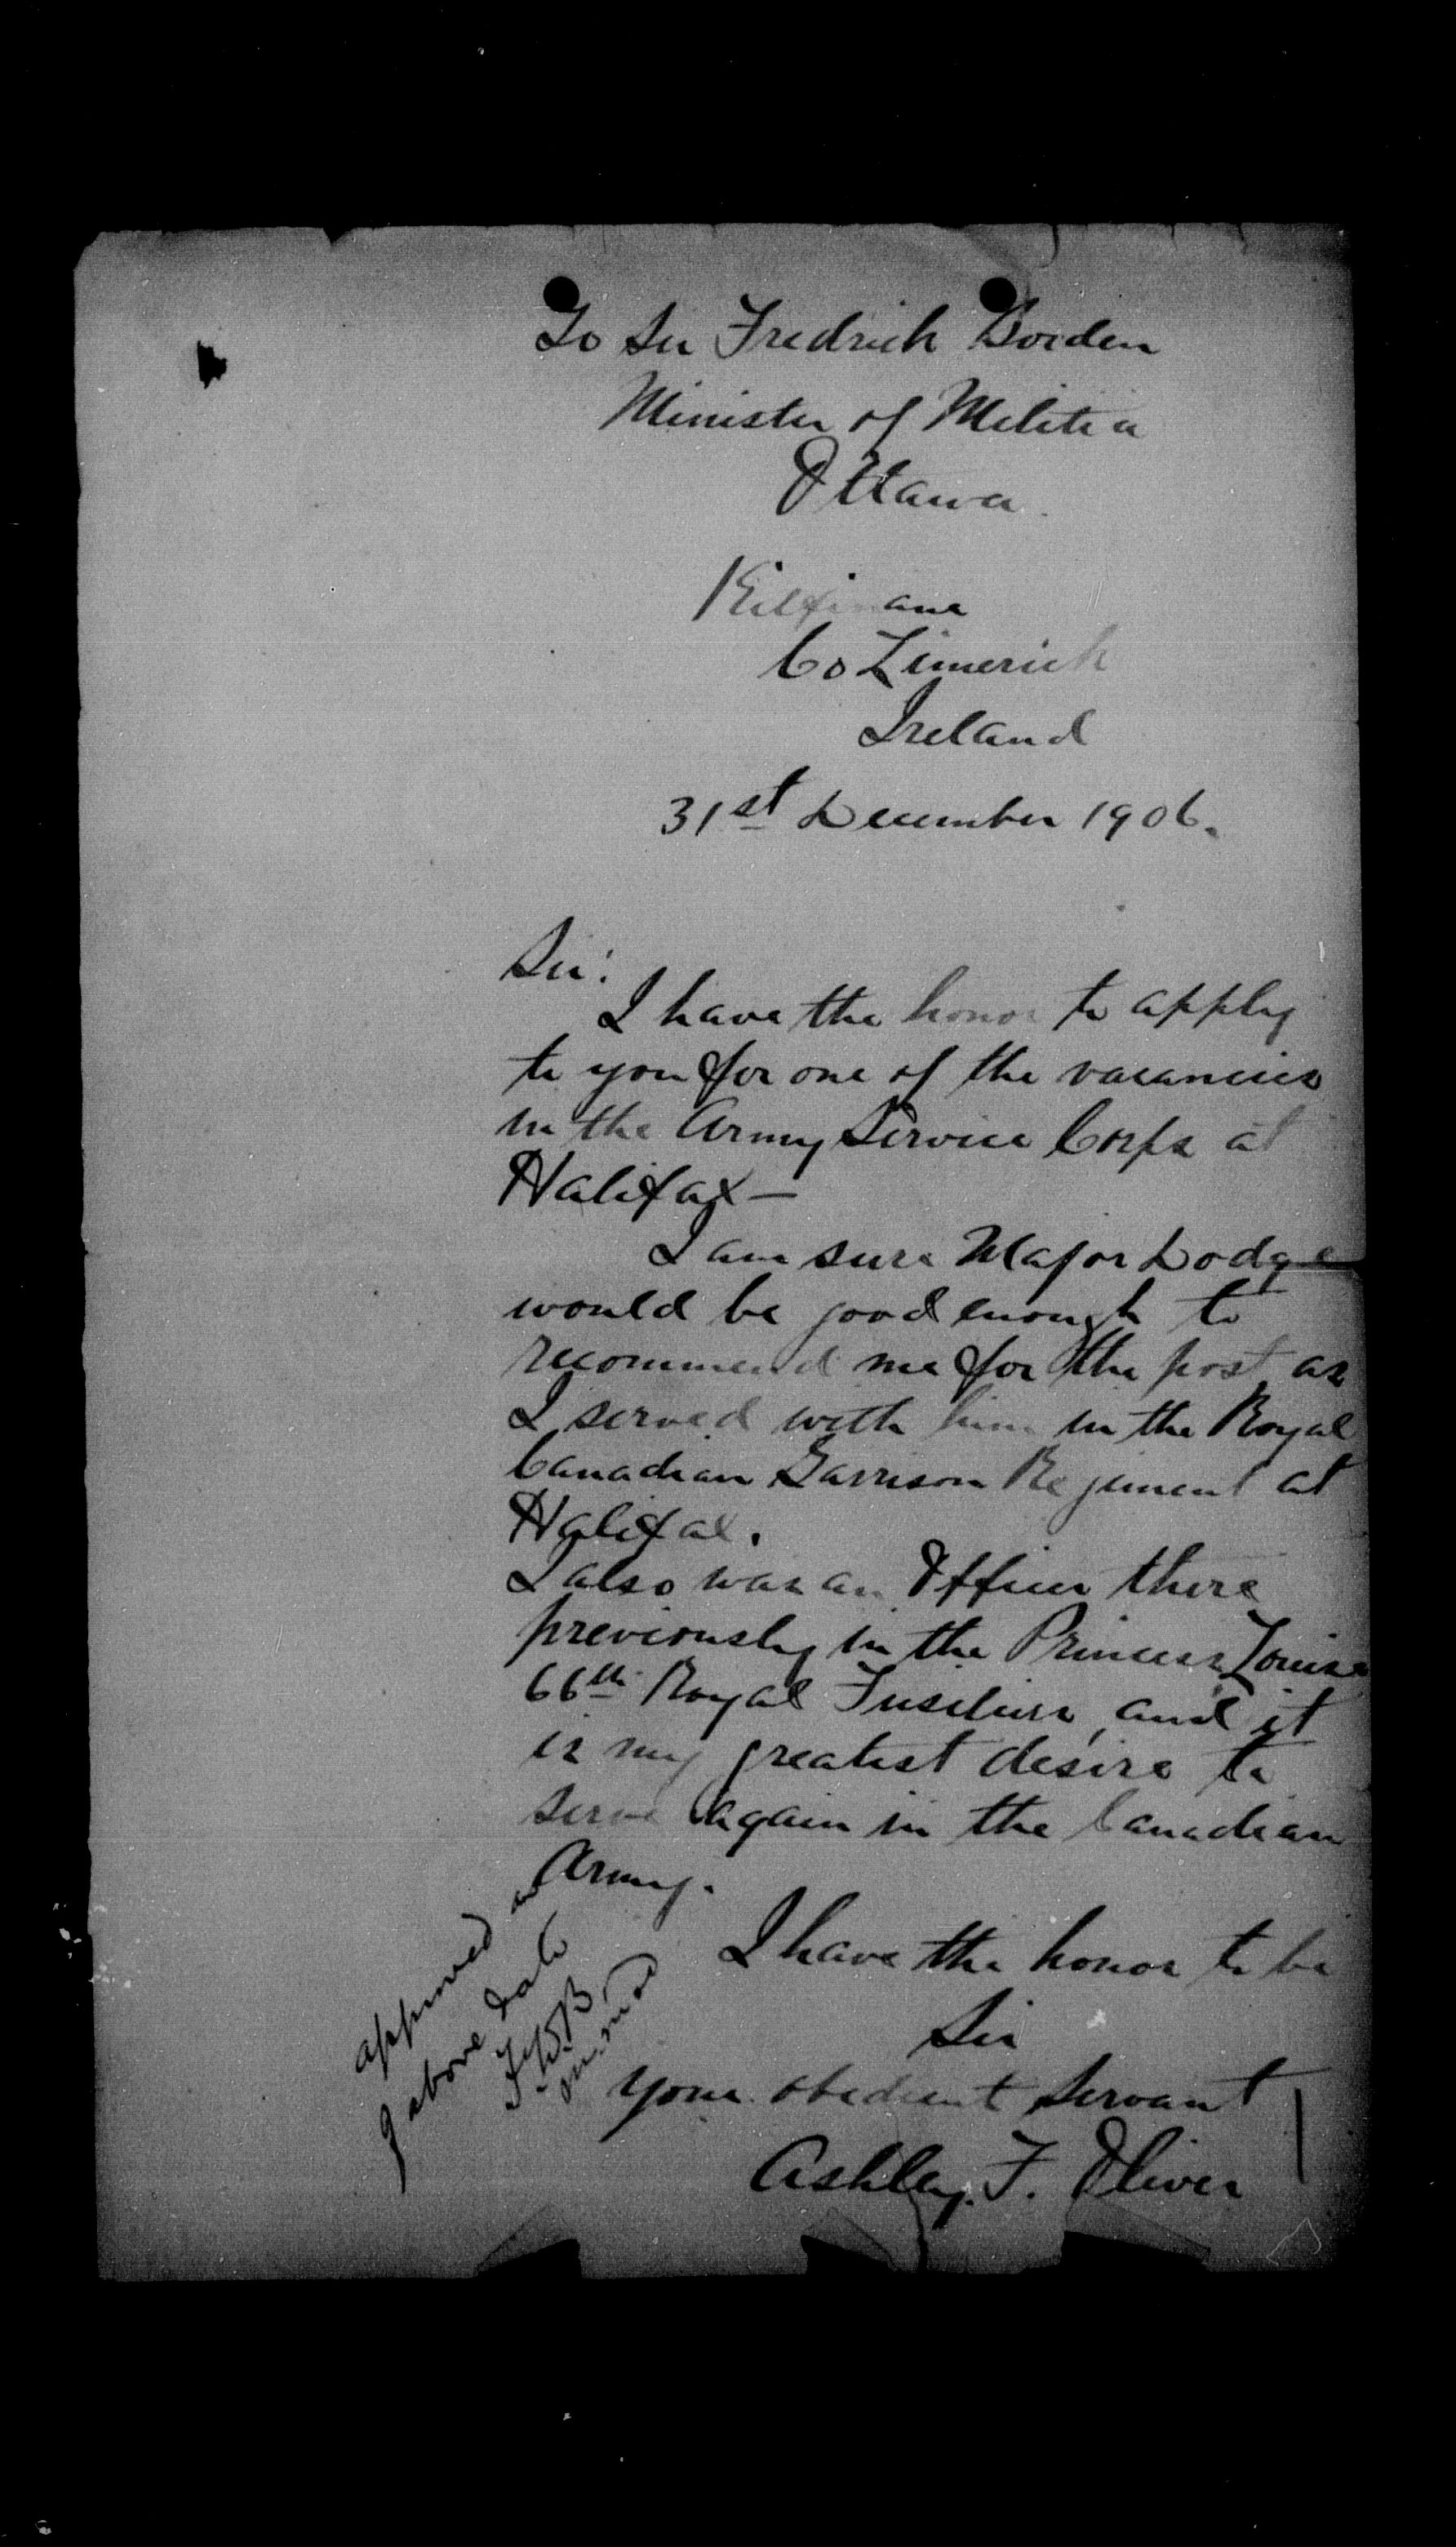 To Sir Fredrick Borden
Minister of Militia
Ottawa.
Kilfinane
Co Limerick
Ireland
31st December 1906.
Sir:
I have the honor to apply
to you for one of the vacancies
in the Army Service Corps at
Halifax —
I am sure Major Dodge
would be good enough to
recommend me for the post as
I served with him in the Royal
Canadian Garrison Regiment at
Halifax.
I also was an Officer there
previously in the Princess Louise
66th Royal Fusiliers, and it
is my greatest desire to
serve again in the Canadian
Army.
I have the honor to be
Sir
your obedient Servant
Ashley. F. Oliver
approved as
of above date
FWB